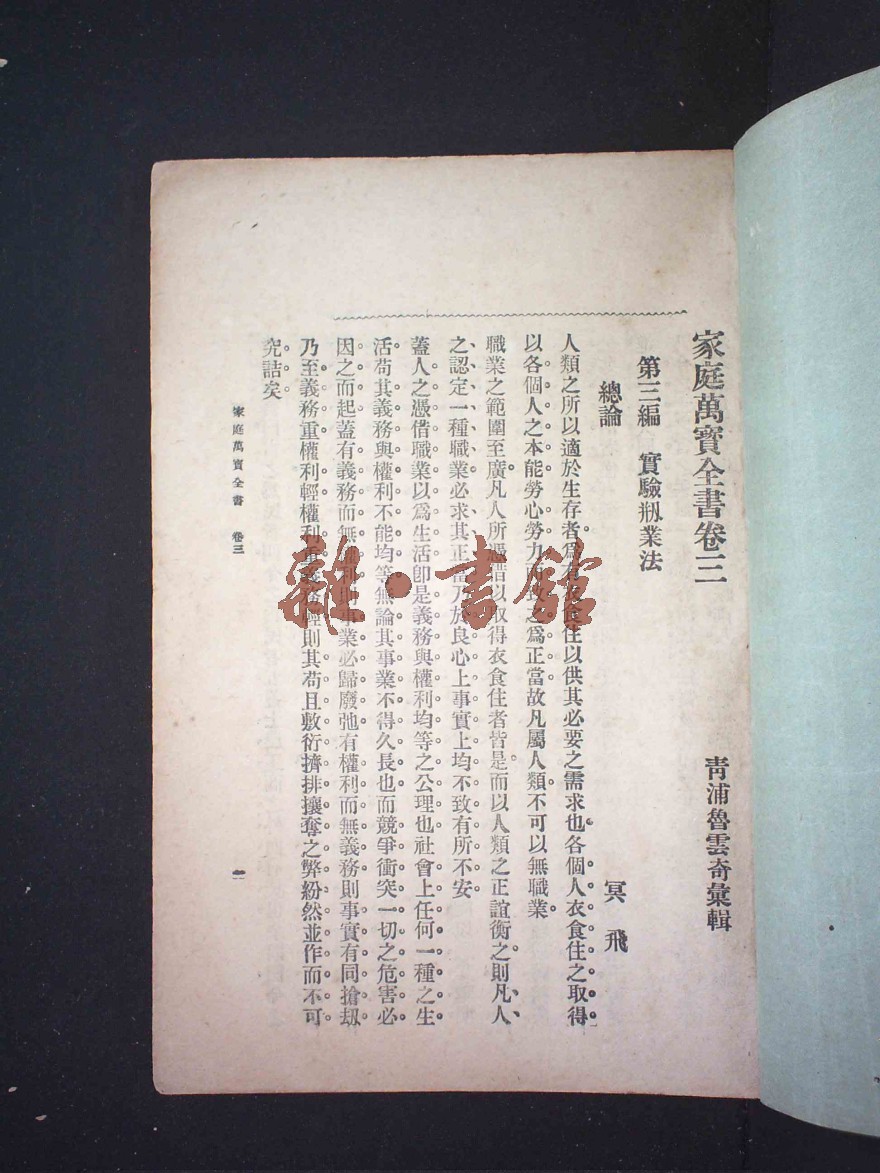 家庭萬寶全書卷三
青浦魯雲奇彙輯
第三編　實驗刱業法
總論
冥飛
人類之所以適於生存者為有衣食住以供其必要之需求也各個人衣食住之取得
以各個人之本能勞心勞力而致之為正當故凡屬人類不可以無職業
職業之範圍至廣凡人所憑借以取得衣食住者皆是而以人類之正誼衡之則凡人
之認定一種職業必求其正當乃於良心上事實上均不致有所不安
蓋人之憑借職業以爲生活卽是義務與權利均等之公理也社會上任何一種之生
活苟其義務與權利不能均等無論其事業不得久長也而競爭衝突一切之危害必
因之而起蓋有義務而無權利則事業必歸廢弛有權利而無義務則事實有同搶刼
乃至義務重權利輕權利重義務輕則其苟且敷衍擠排攘奪之弊紛然並作而不可
究詰矣
家庭萬寶全書　卷三
一
雜·書館